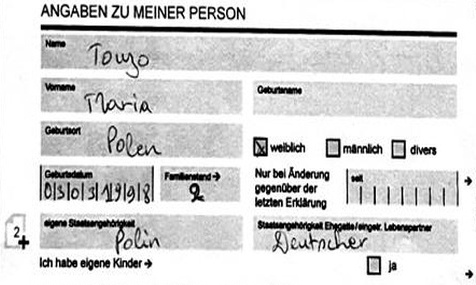 ANGABEN ZU MEINER PERSON
Name
Vorname Geburtsname
Maria
Geburtsort
Polen
weiblich männlich divers
Geburtsdatum Familienstand → Nur bei Änderung gegenüber der letzten Erklärung seit →
03031998 2
2 + eigene Staatsangehörigkeit Staatsangehörigkeit Ehegatte/eingetr. Lebenspartner
Polin Deutscher
Ich habe eigene Kinder → ja →